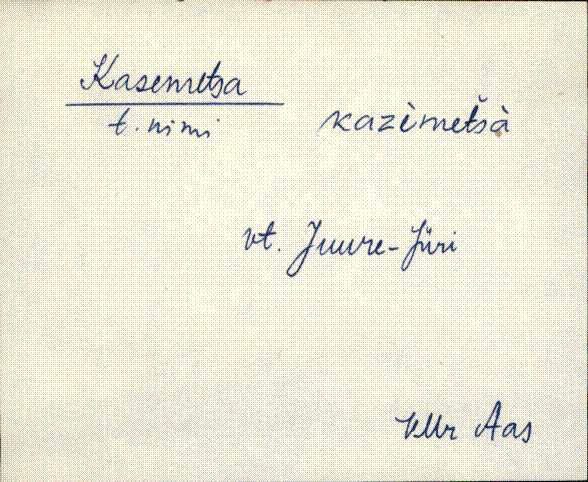 Kasemetsa
t. nimi kazèmetšà
vt. Juure-Jüri
KMr Aas